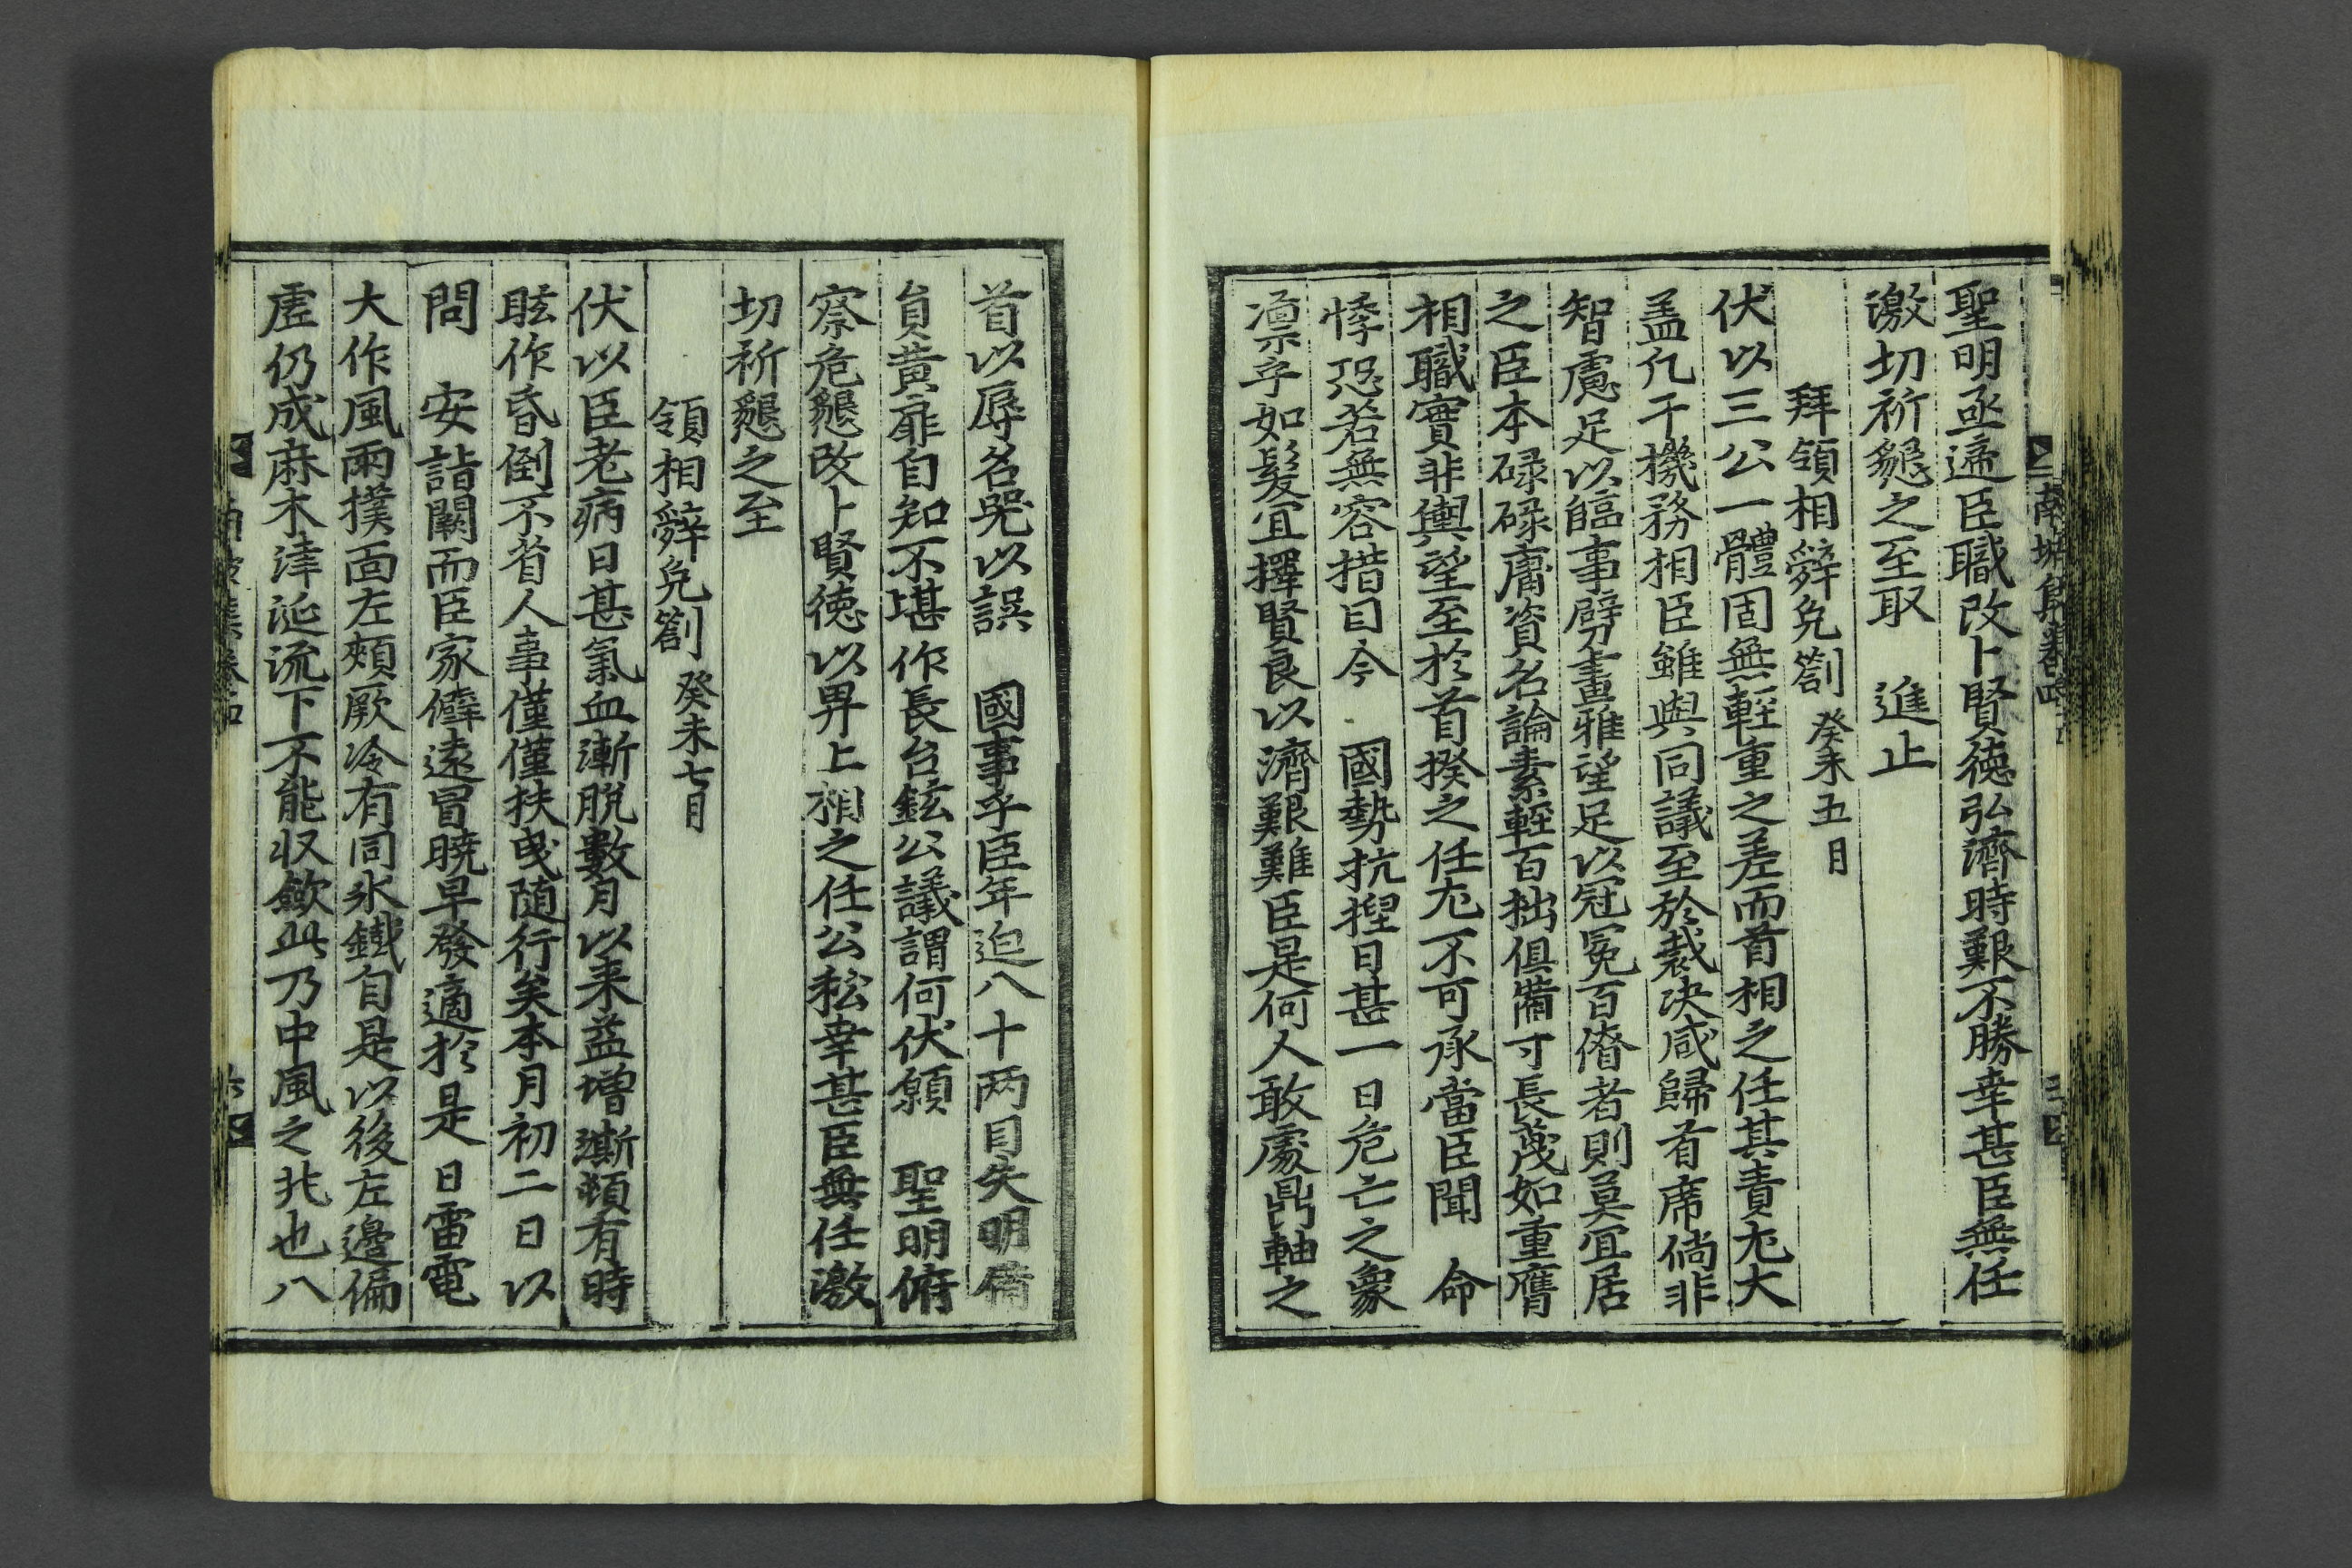 聖明亟遞臣職改卜賢德弘濟時艱不勝幸甚臣無任
激切祈懇之至取　進止
拜領相辭免劄 癸未五月
伏以三公一體固無輕重之差而首相之任其責尤大
盖凡干機務相臣雖與同議至於裁决咸歸首席倘非
智慮足以臨事劈畫雅望足以冠冕百僚者則莫宜居
之臣本碌碌庸資名論素輕百拙俱備寸長蔑如重膺
相職實非輿望至於首揆之任尤不可承當臣聞　命
悸恐若無容措目今　國勢抗捏日甚一日危亡之象
凛乎如髮宜擇賢良以濟艱難臣是何人敢處鼎軸之
首以辱名器以誤　國事乎臣年迫八十两目失明備
負黄扉自知不堪作長台鉉公議謂何伏願　聖明俯
察危懇改卜賢德以畀上相之任公私幸甚臣無任激
切祈懇之至
領相辭免劄 癸未七月
伏以臣老病日甚氣血漸脱數月以来益增澌頓有時
眩作昏倒不省人事僅僅扶曵随行矣本月初二日以
問　安詣闕而臣家僻遠冒曉早發適於是日雷電
大作風雨撲面左頰厥冷有同氷鐵自是以後左邊偏
虚仍成麻木津涎流下不能収歛此乃中風之兆也八